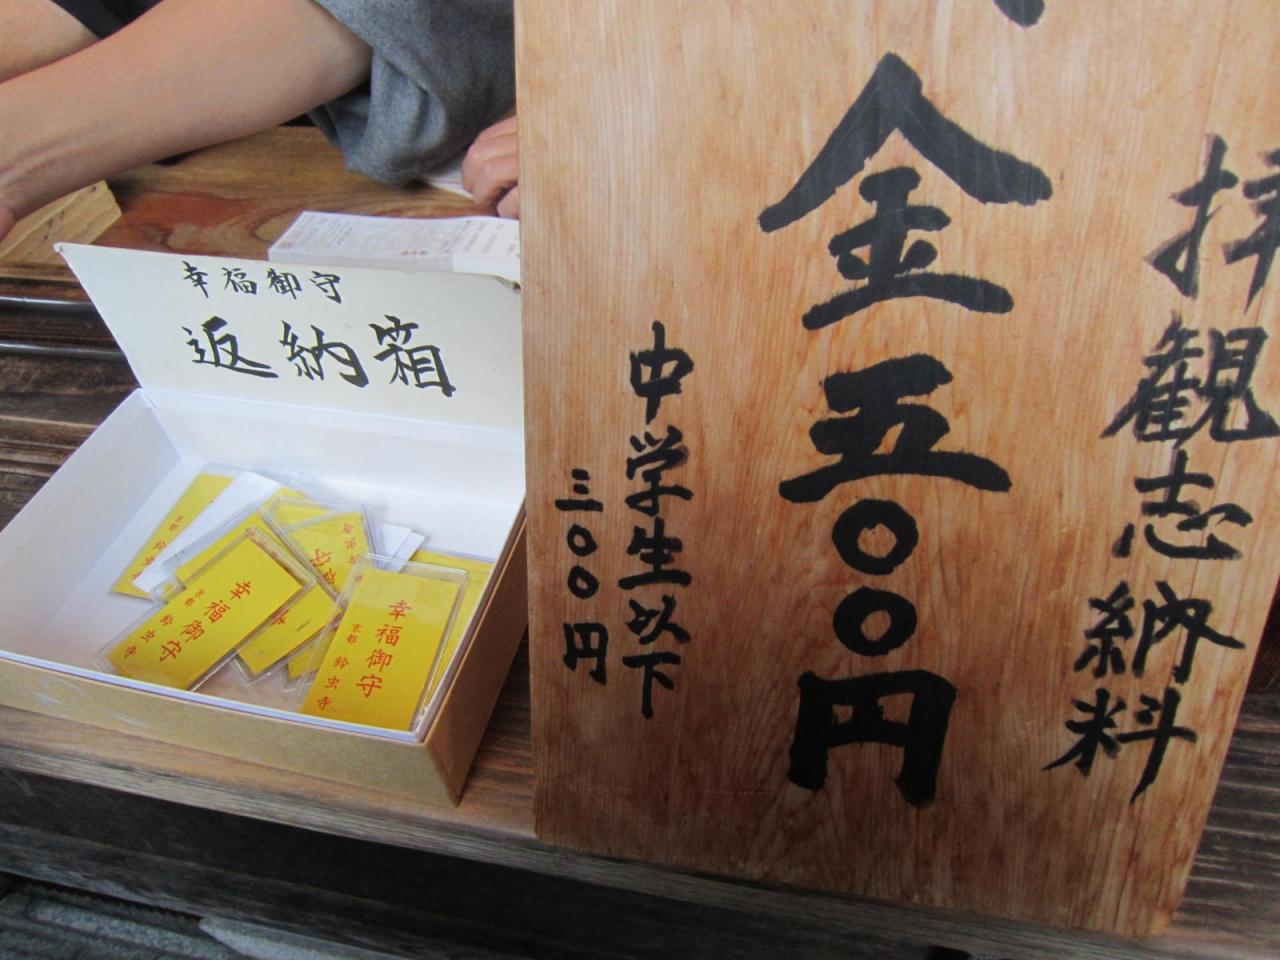 拝観志納料
金五〇〇円
中学生以下
三〇〇円
幸福御守
返納箱
幸福御守
京都 鈴虫寺
幸福御守
京都 鈴虫寺